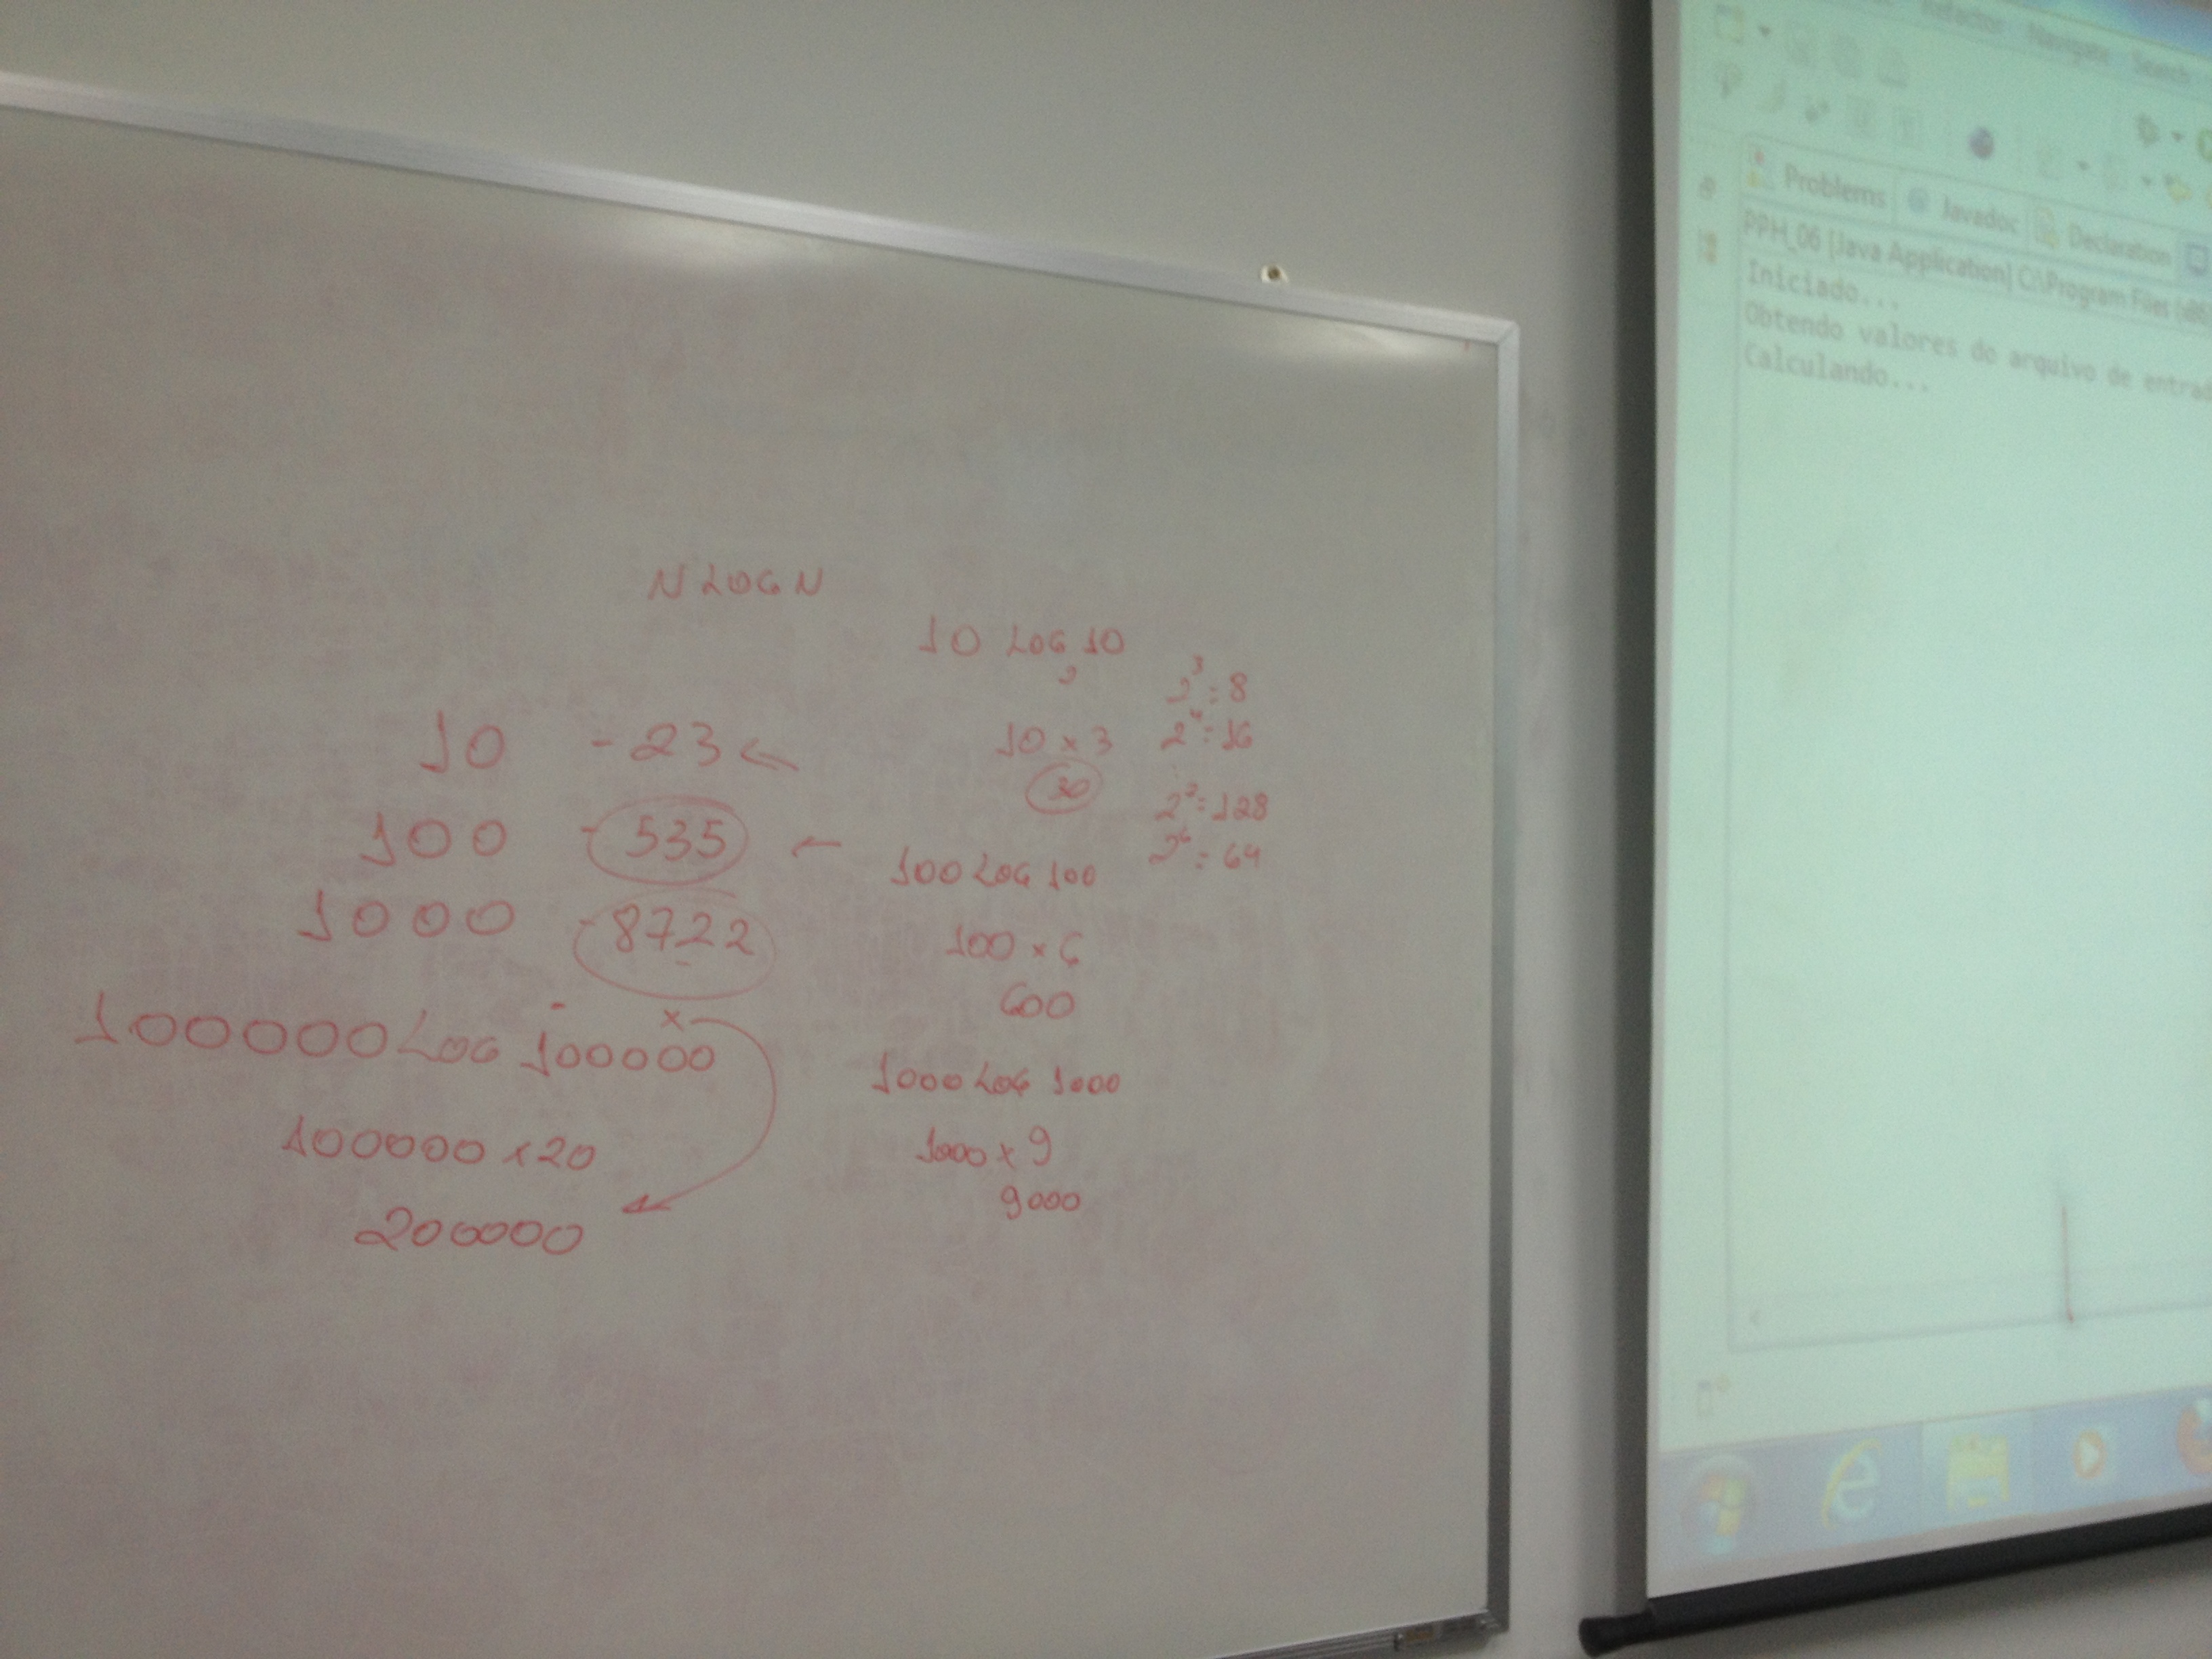 N LOG N
10 - 23 ←
100 - 535 ←
1000 - 8722
100000 LOG 100000
x
100000 x 20
200000
10 LOG₂ 10
10 x 3
30
2³ = 8
2⁴ = 16
2⁷ = 128
2⁶ = 64
100 LOG 100
100 x 6
600
1000 LOG 1000
1000 x 9
9000
Refactor Navigate Search
Problems Javadoc Declaration
PPH_06 [Java Application] C:\Program Files (x86
Iniciado...
Obtendo valores do arquivo de entrad
Calculando...